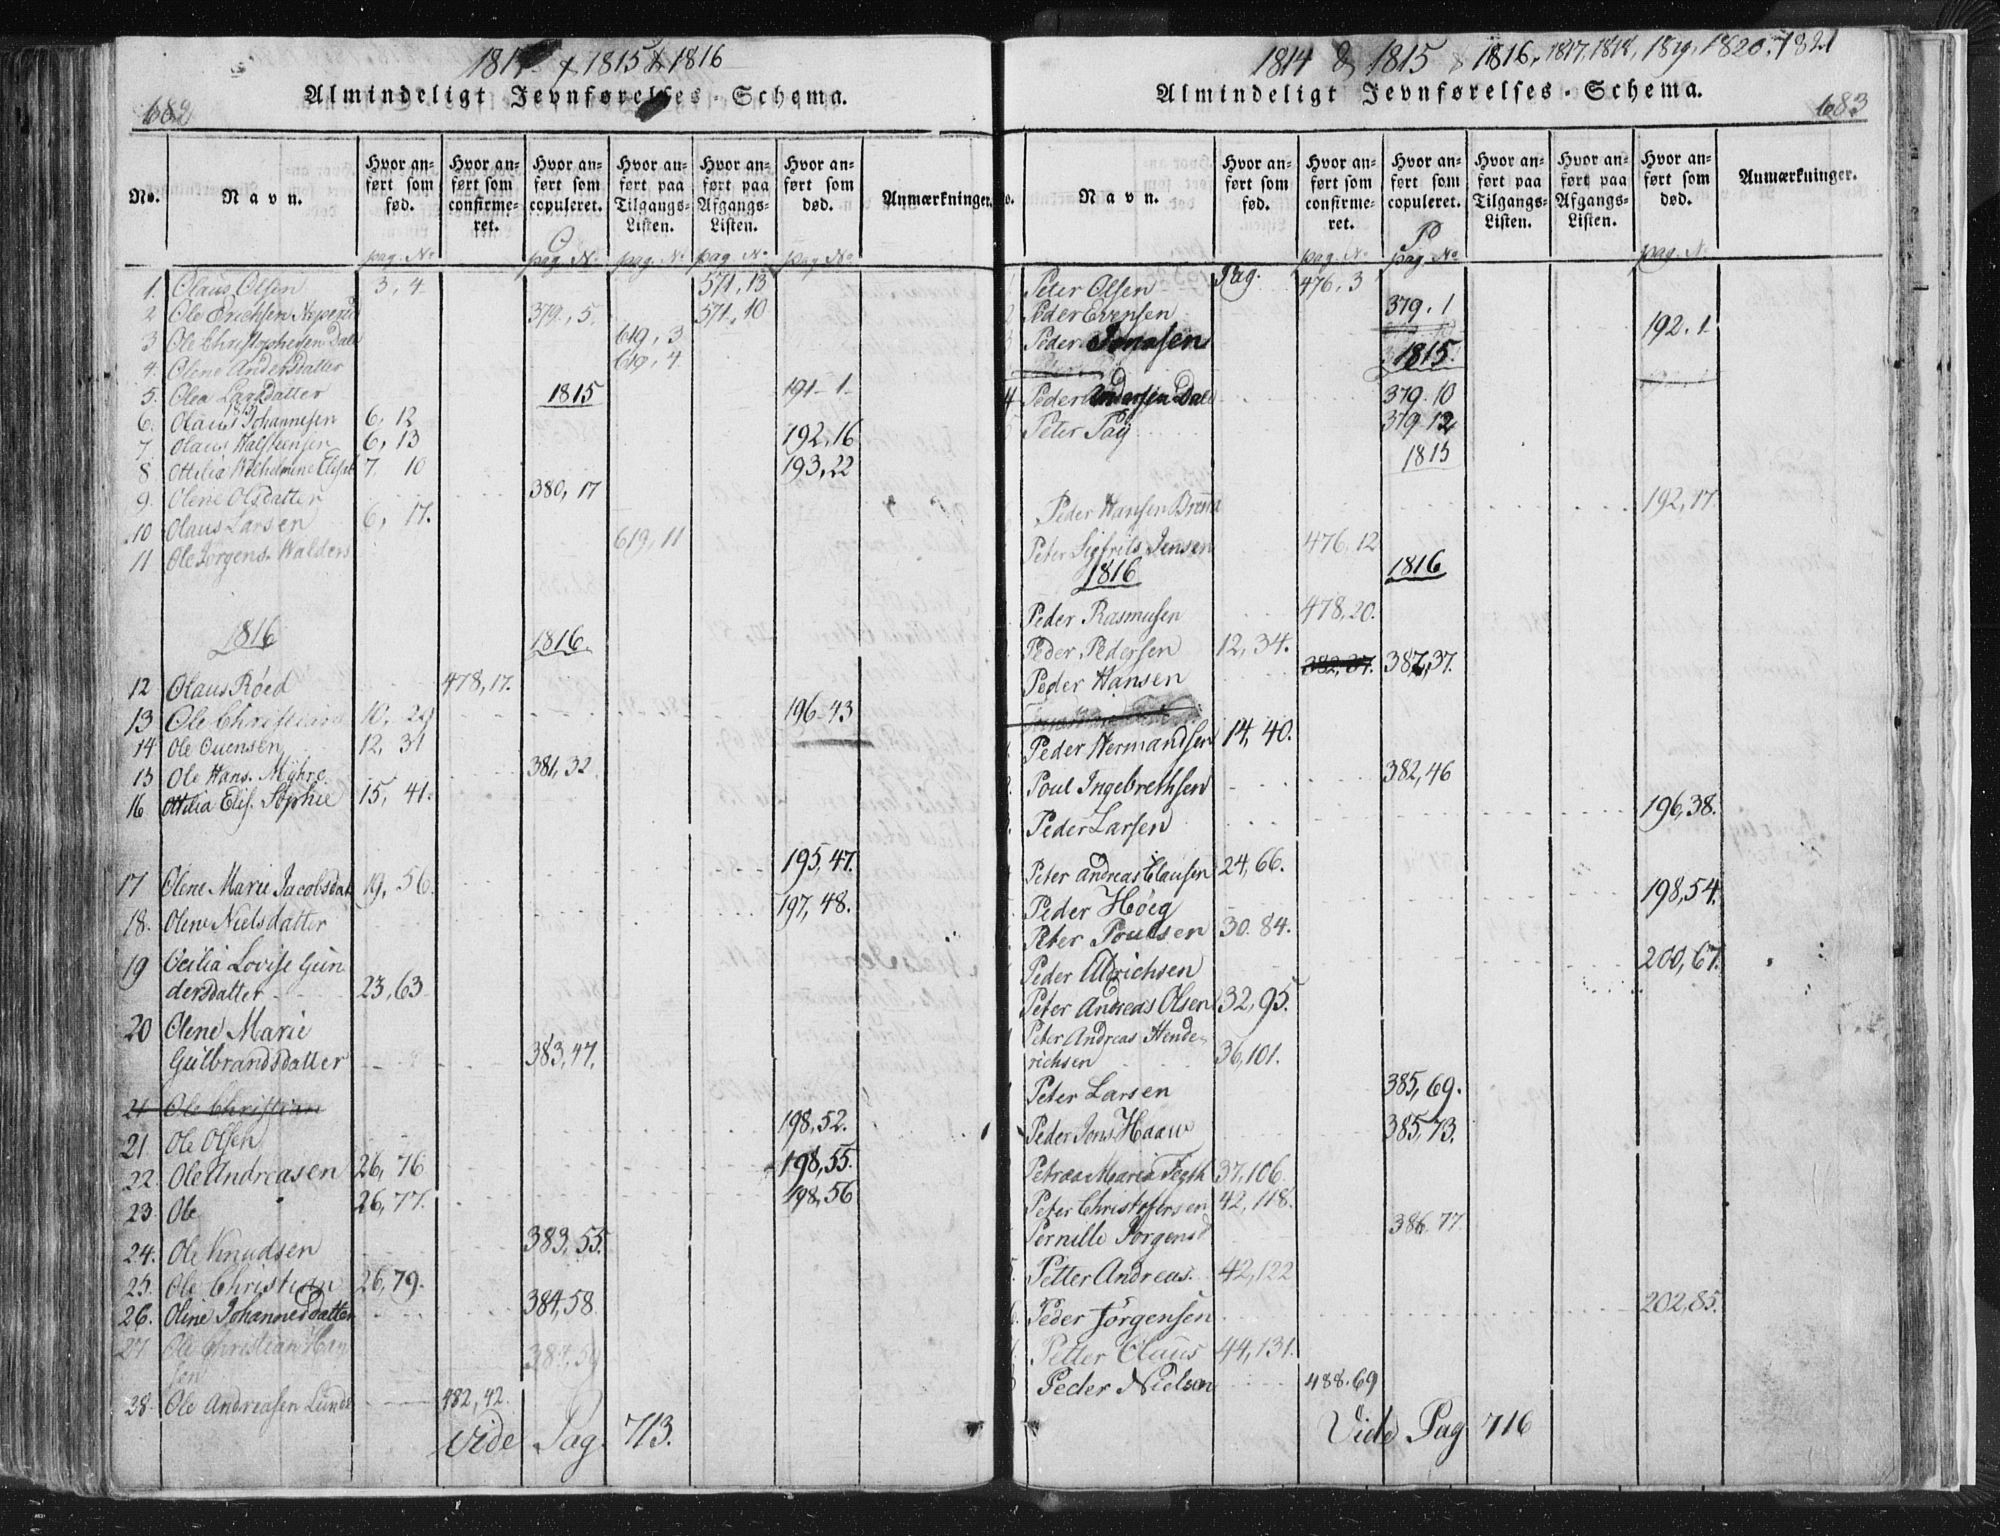 1814 & 1815 & 1816
Almindeligt Jevnførelses-Schema.
682
No. Navn. Hvor anført som fød. Hvor anført som confirmeret. Hvor anført som copuleret. Hvor anført paa Tilgangs-Listen. Hvor anført paa Afgangs-Listen. Hvor anført som død. Anmærkninger.
O
pag. No pag. No pag. No pag. No pag. No
1. Olaus Olsen 3, 4 571, 13
2 Ole Erichsen 379, 5. 571, 10
3 Ole Christophersen Dale 619, 3
4. Olene Andersdatter 619, 4.
5. Olea Larsdatter 1815 191-1.
1815
6. Olaus Johannesen 6, 12
7 Olaus Halsteensen 6, 13 192, 16
8 Ottilia Wilhelmine Elisab 7. 10 193, 22
9. Olene Olsdatter 380, 17
10 Olaus Larsen 6, 17.
11 Ole Jorgens. Walders 619, 11
1816 1816.
12 Olaus Röed 478, 17.
13 Ole Christian 10, 29 196-43
14 Ole Evensen 12, 31
15 Ole Hans. Myhre 381, 32
16 Ottilia Elis. Sophie 15, 41.
17 Olene Marie Jacobsdat 19, 56. 195, 47.
18. Olene Nielsdatter 197, 48.
19 Ocilia Lovise Gun
dersdatter 23, 63
20 Olene Marie
Gulbrandsdatter 383, 47.
21 Ole Christian
21 Ole Olsen 198, 52.
22. Ole Andreasen 26, 76 198, 55.
23. Ole 26, 77. 198, 56
24. Ole Knudsen 383, 55.
25. Ole Christian 26, 79.
26. Oline Johannesdatter 384, 58.
27 Ole Christian Han
sen 384, 59
28. Ole Andreasen Lunde 482, 42.
Vide Pag. 713.
1814 & 1815 & 1816, 1817, 1818, 1819, 1820, 1821
Almindeligt Jevnførelses-Schema.
683
No. Navn. Hvor anført som fød. Hvor anført som confirmeret. Hvor anført som copuleret. Hvor anført paa Tilgangs-Listen. Hvor anført paa Afgangs-Listen. Hvor anført som død. Anmærkninger.
P
Pag. pag. No pag. No pag. N.
1 Peter Olsen 476, 3
2 Peder Evensen 379. 1
3 Peder Jonasen 192. 1
1815.
4 Peder Andersen Dale 379. 10
5 Peter Paÿ 379 12
1815
Peder Hansen 192, 17.
Peter Sigfrits Jensen 476, 12
1816 1816
Peder Rasmusen 478, 20.
Peder Pedersen 12, 34.
Peder Hansen 382, 37. 387, 37.
Peder Hermandsen 14, 40.
Poul Ingebrethsen 382, 46
Peder Larsen 196, 38.
Peter Andreas Clausen 24, 66.
Peder Höeg 198, 54.
Peter Poulsen 30. 84.
Peder Ulrichsen 200, 67.
Peter Andreas Olsen 32, 95.
Peter Andreas Hende
richsen 36, 101.
Peter Larsen 385, 69.
Peder Jons Haaw 385, 73.
Petrea Maria Fegth 37, 106.
Peter Christofersen 42, 118.
Pernille Jorgensd 386. 77.
Petter Andreas. 42, 122
Peder Jörgensen 202, 85.
Petter Claus 44, 131.
Peder Nielsen 488. 69
Vide Pag 716